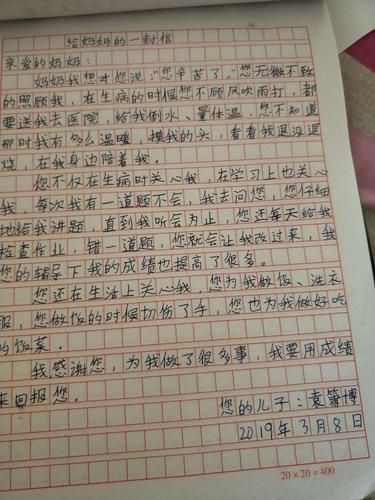 给妈妈的一封信
亲爱的妈妈：
妈妈我想对您说："您辛苦了。"您无微不致
的照顾我，在生病的时候您不顾风吹雨打，都
要送我去医院，给我倒水、量体温，您不知道
那时我有多么温暖，摸我的头，看看我退没退
烧，在我身边陪着我。
您不仅在生病时关心我，在学习上也关心
我，每次我有一道题不会，我去问您，您仔细
地给我讲题，直到我听会为止，您还每天给我
检查作业，错一道题，您就会让我改过来，我
您的辅导下我的成绩也提高了很多。
您还在生活上关心我，您为我做饭、洗衣
服，您做饭的时候切伤了手，您也为我做好吃
的饭菜。
我感谢您，为我做了很多事，我要用成绩
来回报您。
您的儿子：袁箫博
2019年3月8日
20×20=400